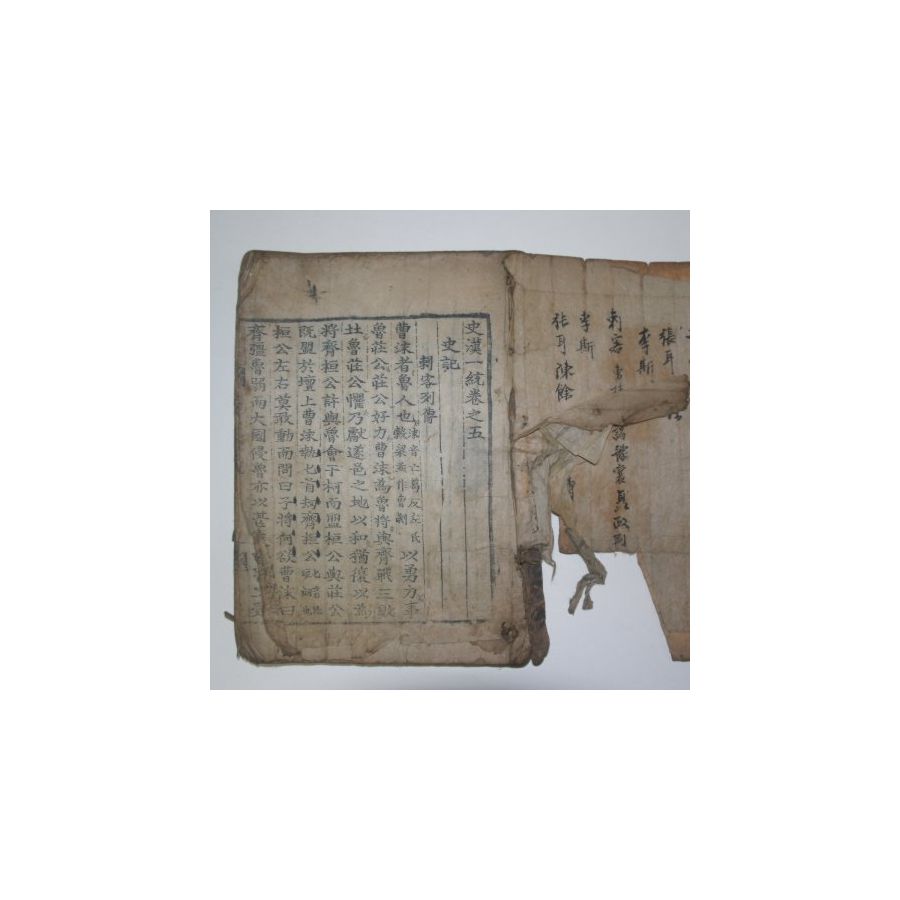 張耳
李斯
刺客
李斯
張耳陳餘
史漢一統卷之五
史記
刺客列傳
曹沫者魯人也沫音亡葛反左氏穀梁並作曹劌以勇力事
魯莊公莊公好力曹沫爲魯將與齊戰三敗
北魯莊公懼乃獻遂邑之地以和猶復以爲
將齊桓公許與魯會于柯而盟桓公與莊公
旣盟於壇上曹沫執匕首劫齊桓公
桓公左右莫敢動而問曰子將何欲曹沫曰
齊彊魯弱而大國侵魯亦以甚